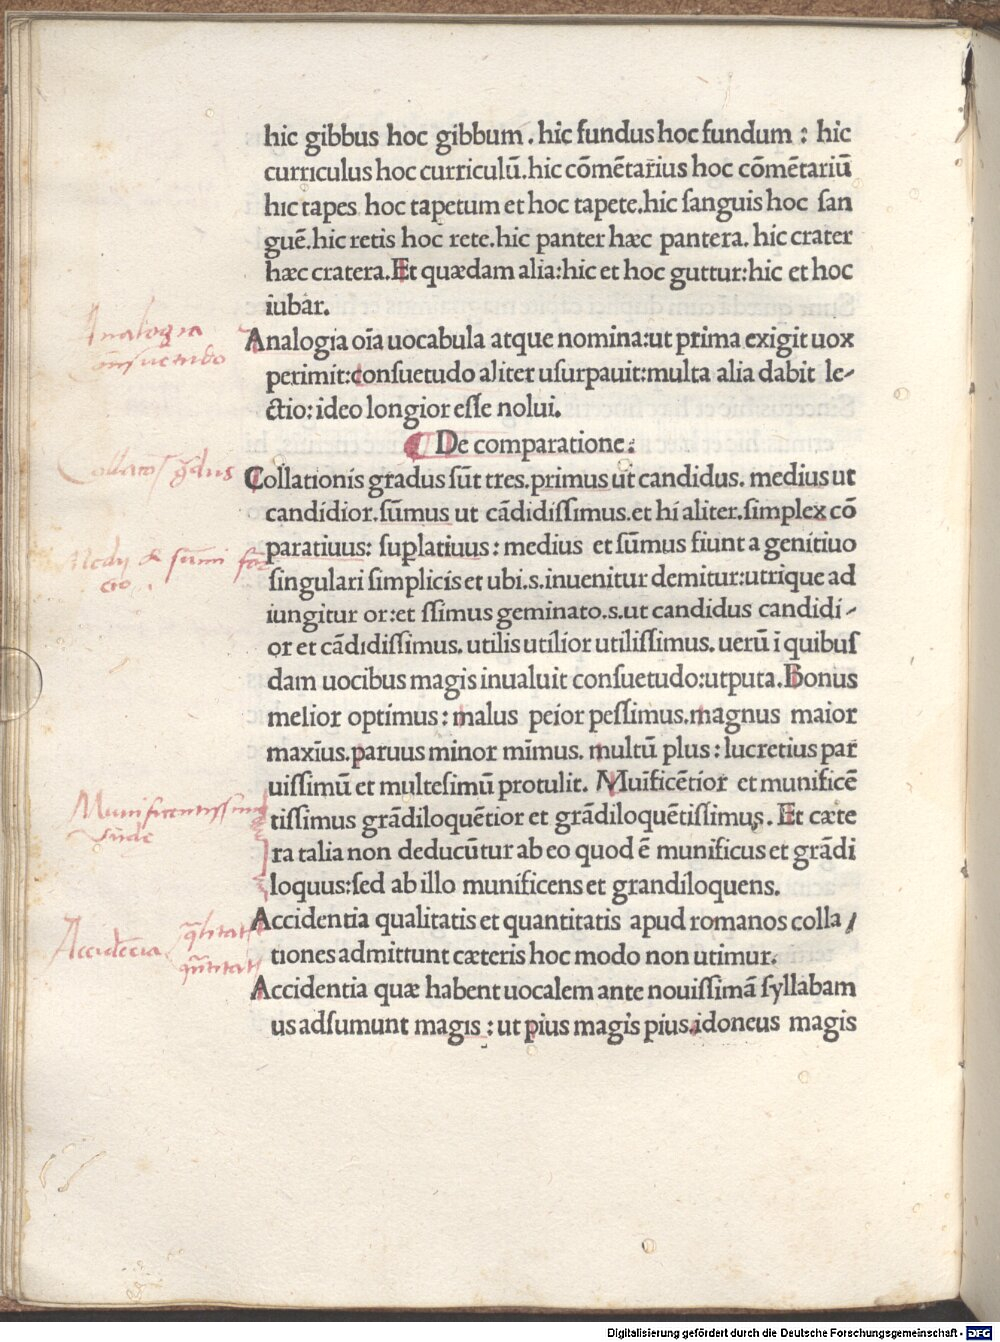 hic gibbus hoc gibbum . hic fundus hoc fundum : hic
curriculus hoc curriculū.hic cōmētarius hoc cōmētariū
hic tapes hoc tapetum et hoc tapete.hic ſanguis hoc ſan
guē.hic retis hoc rete.hic panter hæc pantera. hic crater
hæc cratera.Et quædam alia:hic et hoc guttur:hic et hoc
iubar.
Analogia
Analogia oīa uocabula atque nomina:ut prima exigit uox
perimit:conſuetudo aliter uſurpauit:multa alia dabit le-
ctio: ideo longior eſſe nolui.
De comparatione:
Collatōis gradus
Collationis gradus ſūt tres.primus ut candidus. medius ut
candidior.ſūmus ut cādidiſſimus.et hi aliter.ſimplex cō
paratiuus: ſuꝑlatiuus : medius et ſūmus fiunt a genitiuo
Medij & ſumi
ſingulari ſimplicis et ubi.s.inuenitur demitur:utrique ad
iungitur or:et ſſimus geminato.s.ut candidus candidi -
or et cādidiſſimus. utilis utilior utiliſſimus. uerū ī quibuſ
dam uocibus magis inualuit conſuetudo:utputa.Bonus
melior optimus : malus peior peſſimus.magnus maior
maxīus.paruus minor mīmus. multū plus : lucretius par
uiſſimū et multeſimū protulit. Muīficētior et munificē
Munificentiſſimus
Vnde
tiſſimus grādiloquētior et grādiloquētiſſimus . Et cæte
ra talia non deducūtur ab eo quod ē munificus et grādi
loquus:ſed ab illo munificens et grandiloquens.
Accidentia qualitatis et quantitatis apud romanos colla /
Accidētia q̄litatis
q̄ntitatis
tiones admittunt cæteris hoc modo non utimur.
Accidentia quæ habent uocalem ante nouiſſimā ſyllabam
us adſumunt magis : ut pius magis pius.idoneus magis
Digitalisierung gefördert durch die Deutsche Forschungsgemeinschaft - DFG